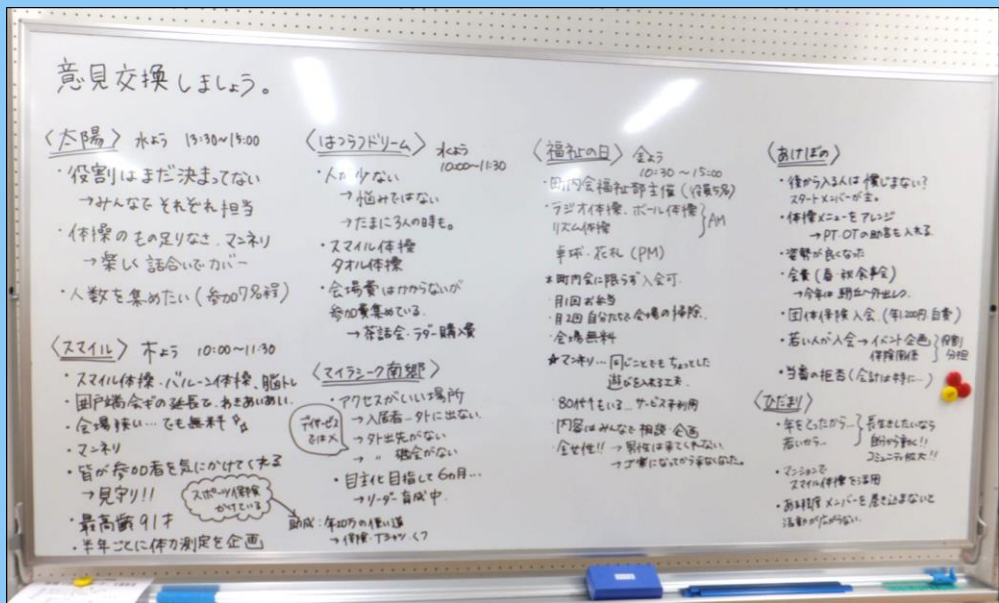 意見交換しましょう。
〈太陽〉 水よう 13:30~15:00
・役割はまだ決まってない
→みんなでそれぞれ担当
・体操のもの足りなさ、マンネリ
→楽しく話合いでカバー
・人数を集めたい(参加7名程)
〈スマイル〉 木よう 10:00~11:30
・スマイル体操・バルーン体操、脳トレ
・井戸端会ギの延長で、わきあいあい。
・会場狭い…でも無料
・マンネリ
・皆が参加者を気にかけてくれる
→見守り!!
・最高齢91才
・半年ごとに体力測定を企画
スポーツ保険
かけている
助成:年20万の使い道
→保険・Tシャツ・くつ
〈はつらつドリーム〉 水よう
10:00~11:30
・人が少ない
→悩みではない
→たまに3人の時も。
・スマイル体操
タオル体操
・会場費はかからないが
参加費集めている
→茶話会・ラダー購入費
〈マイラシーク南郷〉
・アクセスがいい場所
→入居者…外に出ない
→外出先がない
→ 〃 機会がない
デイサービス
ではX
・自主化目指して6ヵ月…
→リーダー育成中
〈福祉の日〉 金よう
10:30~15:00
・町内会福祉部主催(役員5名)
・ラジオ体操、ボール体操
リズム体操 }AM
卓球・花札(PM)
*町内会に限らず入会可
・月1回お弁当
・月2回自分たちで会場の掃除
・会場無料
☆マンネリ…同じことでもちょっとした
遊びを入れる工夫
・80代でもいる…サービス未利用
・内容はみんなで相談・企画
・全女性!!→男性は来てくれない
→ゴ家になってから来なくなった。
〈あけぼの〉
・後から入る人は慣じまない?
スタートメンバーが主。
・体操メニューをアレンジ
→PT・OTの助言も入れる
・姿勢が良くなった
・会費(春・秋食事会)
・団体保険入会(年1,200円自費)
・若い人が入会→イベント企画
保険関係 }役割
分担
・当番の拒否(会計は特に…)
〈ひだまり〉
・年をとったから…
若いから… }長生きしたいなら
自分から動く!!
コミュニティ拡大!!
・マンションで
スマイル体操を活用
・ある程度メンバーを巻き込まないと
活動が広がらない。